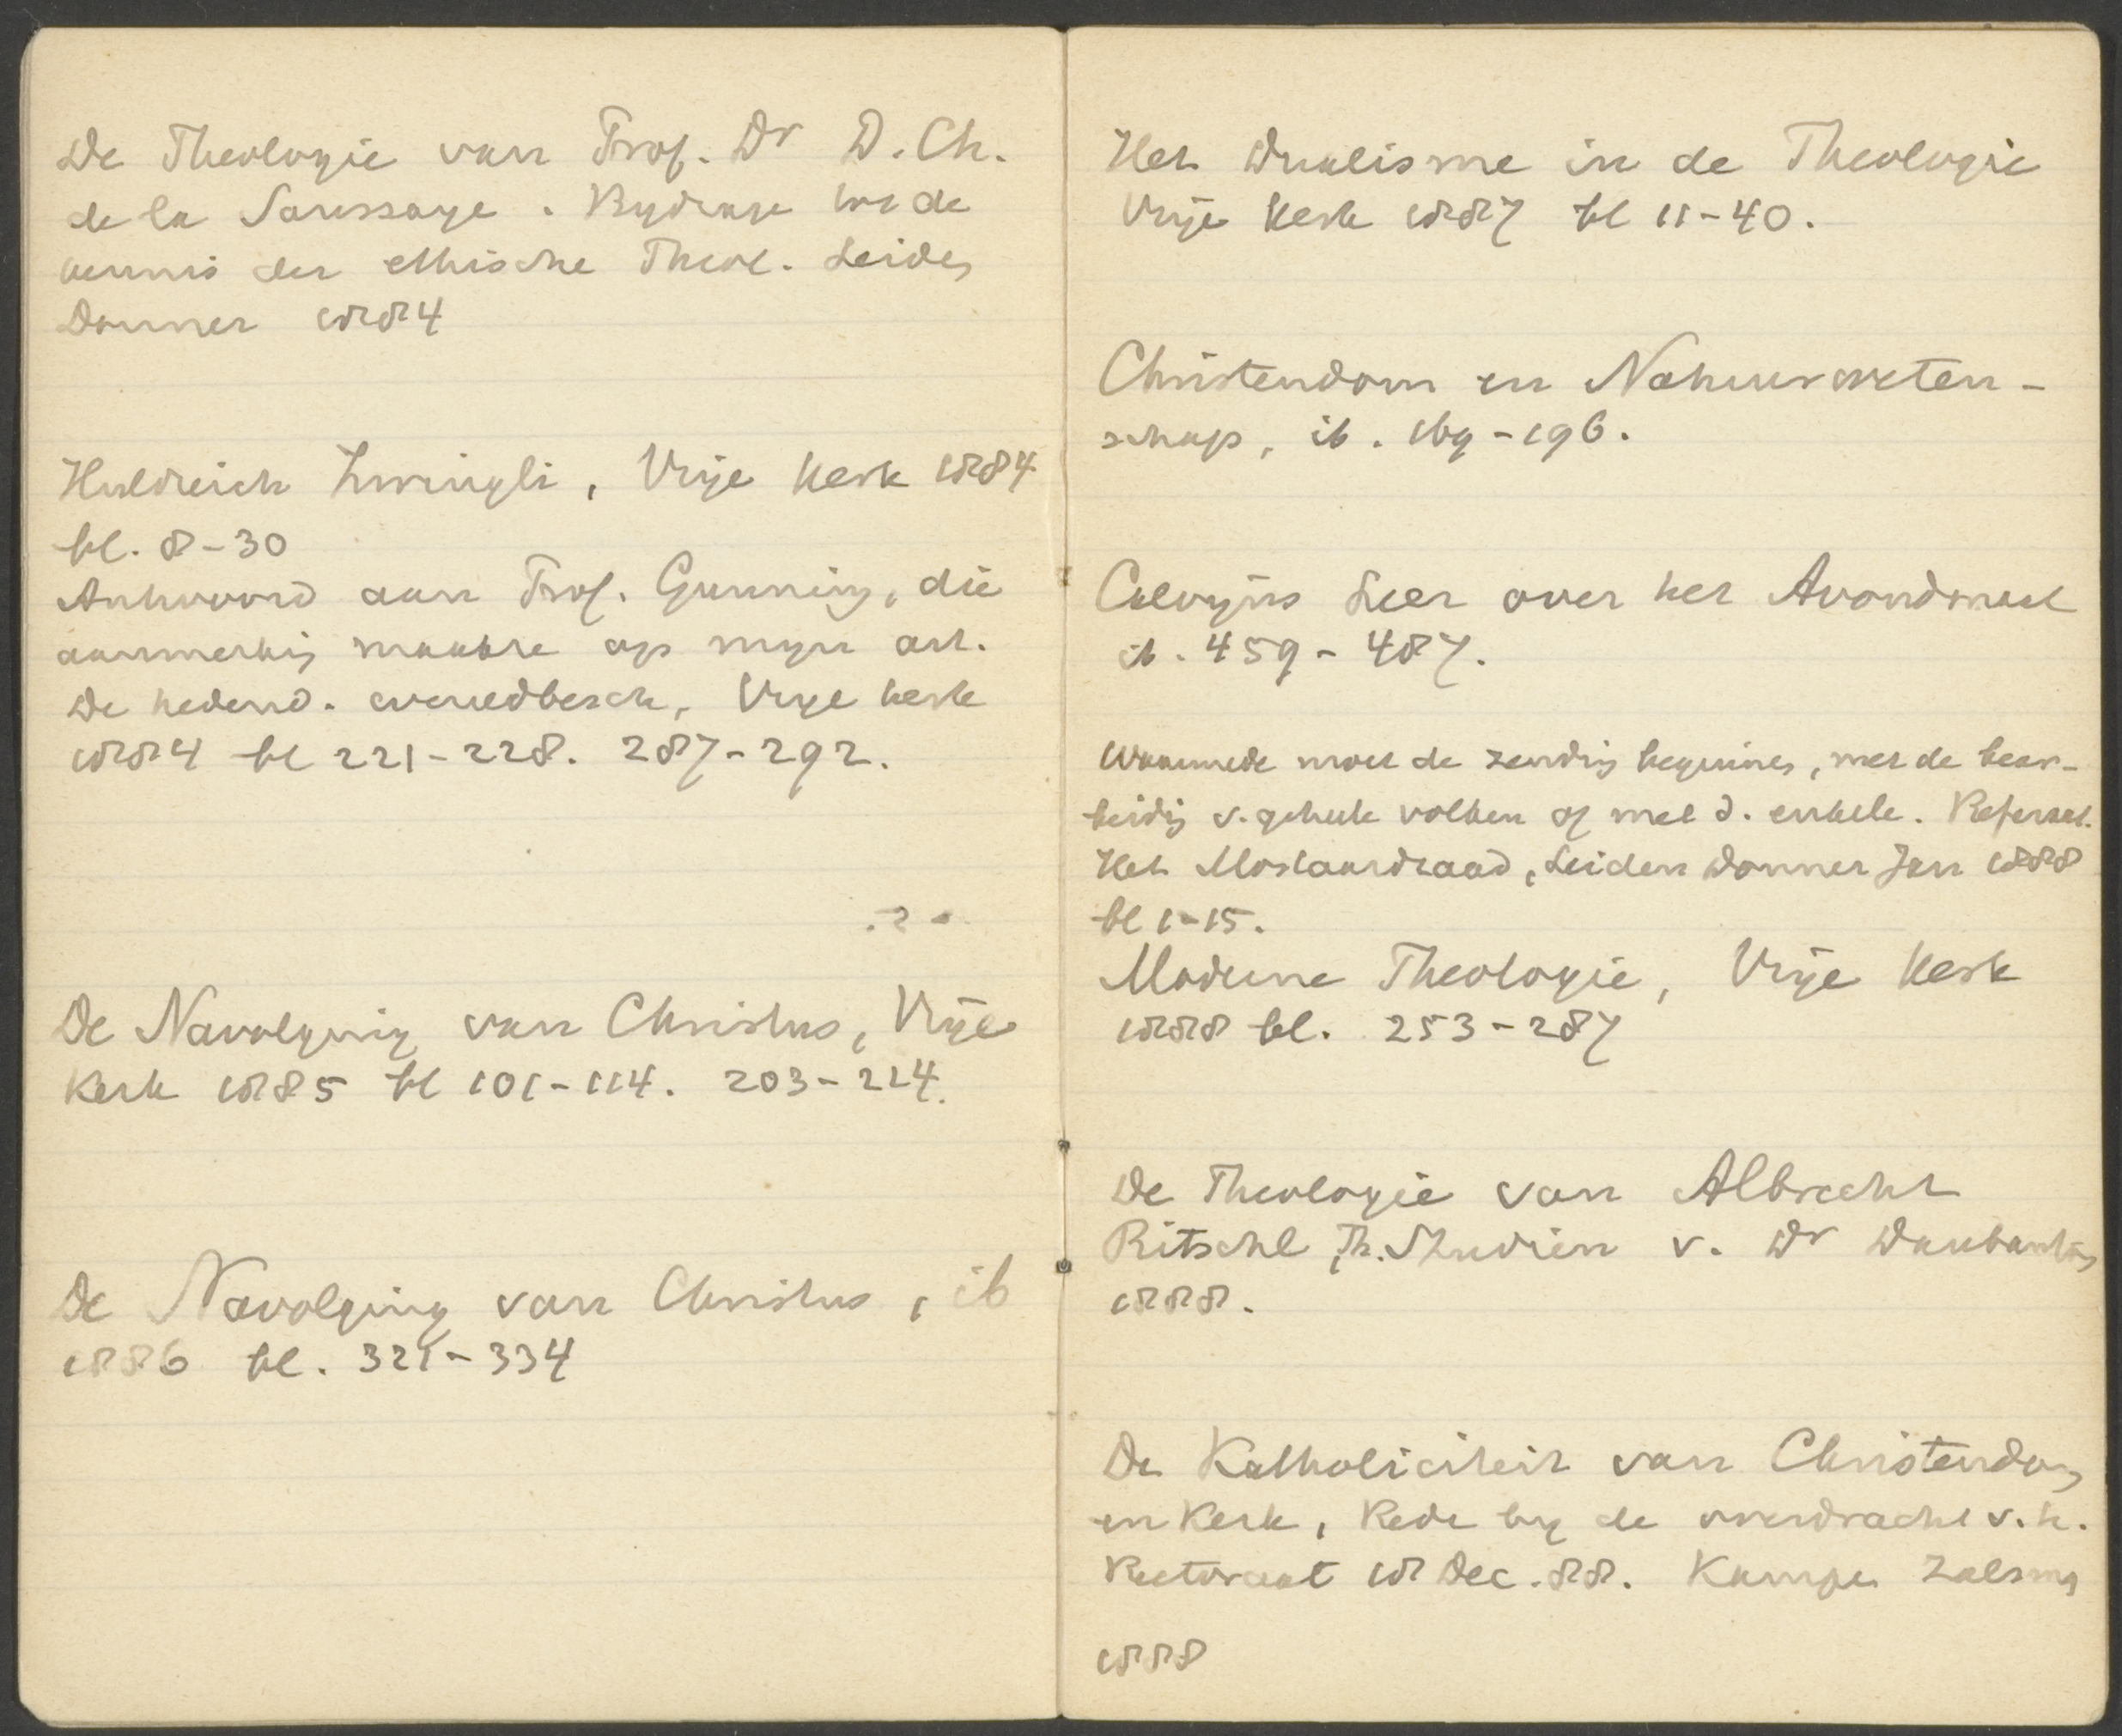 De Theologie van Prof. Dr D. Ch.
de la Saussaye. Bydrage tot de
kennis der ethische Theol. Leiden
Donner 1884
Huldreich Zwingli, Vrije Kerk 1884
bl. 8-30
Antwoord aan Prof. Gunning, die
aanmerking maakte op myn art.
De hedend. wereldbesch, Vrye kerk
1884 bl 221-228. 287-292.
De Navolging van Christus, Vrije
Kerk 1885 bl 101-114. 203-214.
De Navolging van Christus, ib
1886 bl. 321-334
Het Dualisme in de Theologie
Vrije Kerk 1887 bl 11-40.
Christendom en Natuurweten-
schap, ib. 169-196.
Calvyns Leer over het Avondmaal
ib. 459-487.
Waarmede moet de zending beginnen, met de bear-
beiding v. geheele volken of met d. enkele. Referaat.
Het Mostaardzaad, Leiden Donner Jan 1888
bl 1-15.
Moderne Theologie, Vrije Kerk
1888 bl. 253-287
De Theologie van Albrecht
Ritschl, Th. Studien v. Dr Daubanton
1888.
De Katholiciteit van Christendom
en Kerk, Rede by de overdracht v. h.
Rectoraat 18 Dec. 88. Kampen Zalsman
1888